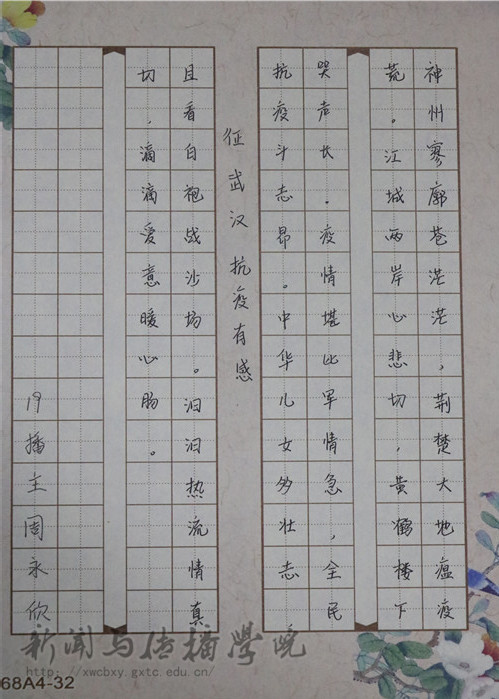 神州寥廓苍茫茫，荆楚大地瘟疫
荒。江城两岸心悲切，黄鹤楼下
哭声长。疫情堪比军情急，全民
抗疫斗志昂。中华儿女多壮志
征武汉抗疫有感
且看白袍战沙场。汩汩热流情真
切，滴滴爱意暖心肠。
19播主周永欣
新闻与传播学院
http://xwcbxy.gxtc.edu.cn/
68A4-32